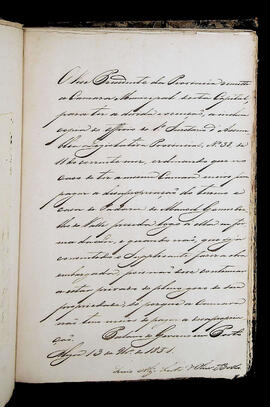 O Snr Presidente da Provincia remette
a Camara Municipal desta Capital,
para ter a devida execução, a inclusa
copia do officio do 1º Secretario d'Assem
blea Legislativa Provincial, Nº 38. de
11 do corrente mez, ordenando que no
caso de ter a mesma Camara meios
para a desapropriação do terreno e
casa de Izidora de Manoel
do Valle proceda logo a ella na for
ma da Lei, e quando não, que
consentida a Supplicante fazer a obra
embargada, pois não deve continuar
a estar privada do pleno gozo de sua
propriedade, só porque a Camara
não tem meios de pagar a desapropria
ção. Palacio do Governo em Porto
Alegre 13 de de 1851.